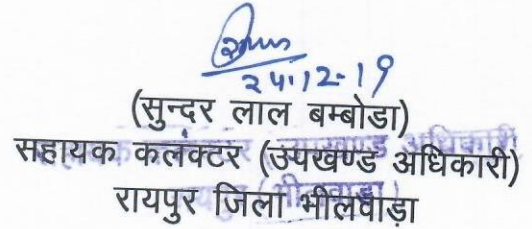 २५.12.19
(सुन्दर लाल बम्बोडा)
सहायक कलंक्टर (उपखण्ड अधिकारी)
रायपुर जिला भीलवाडा